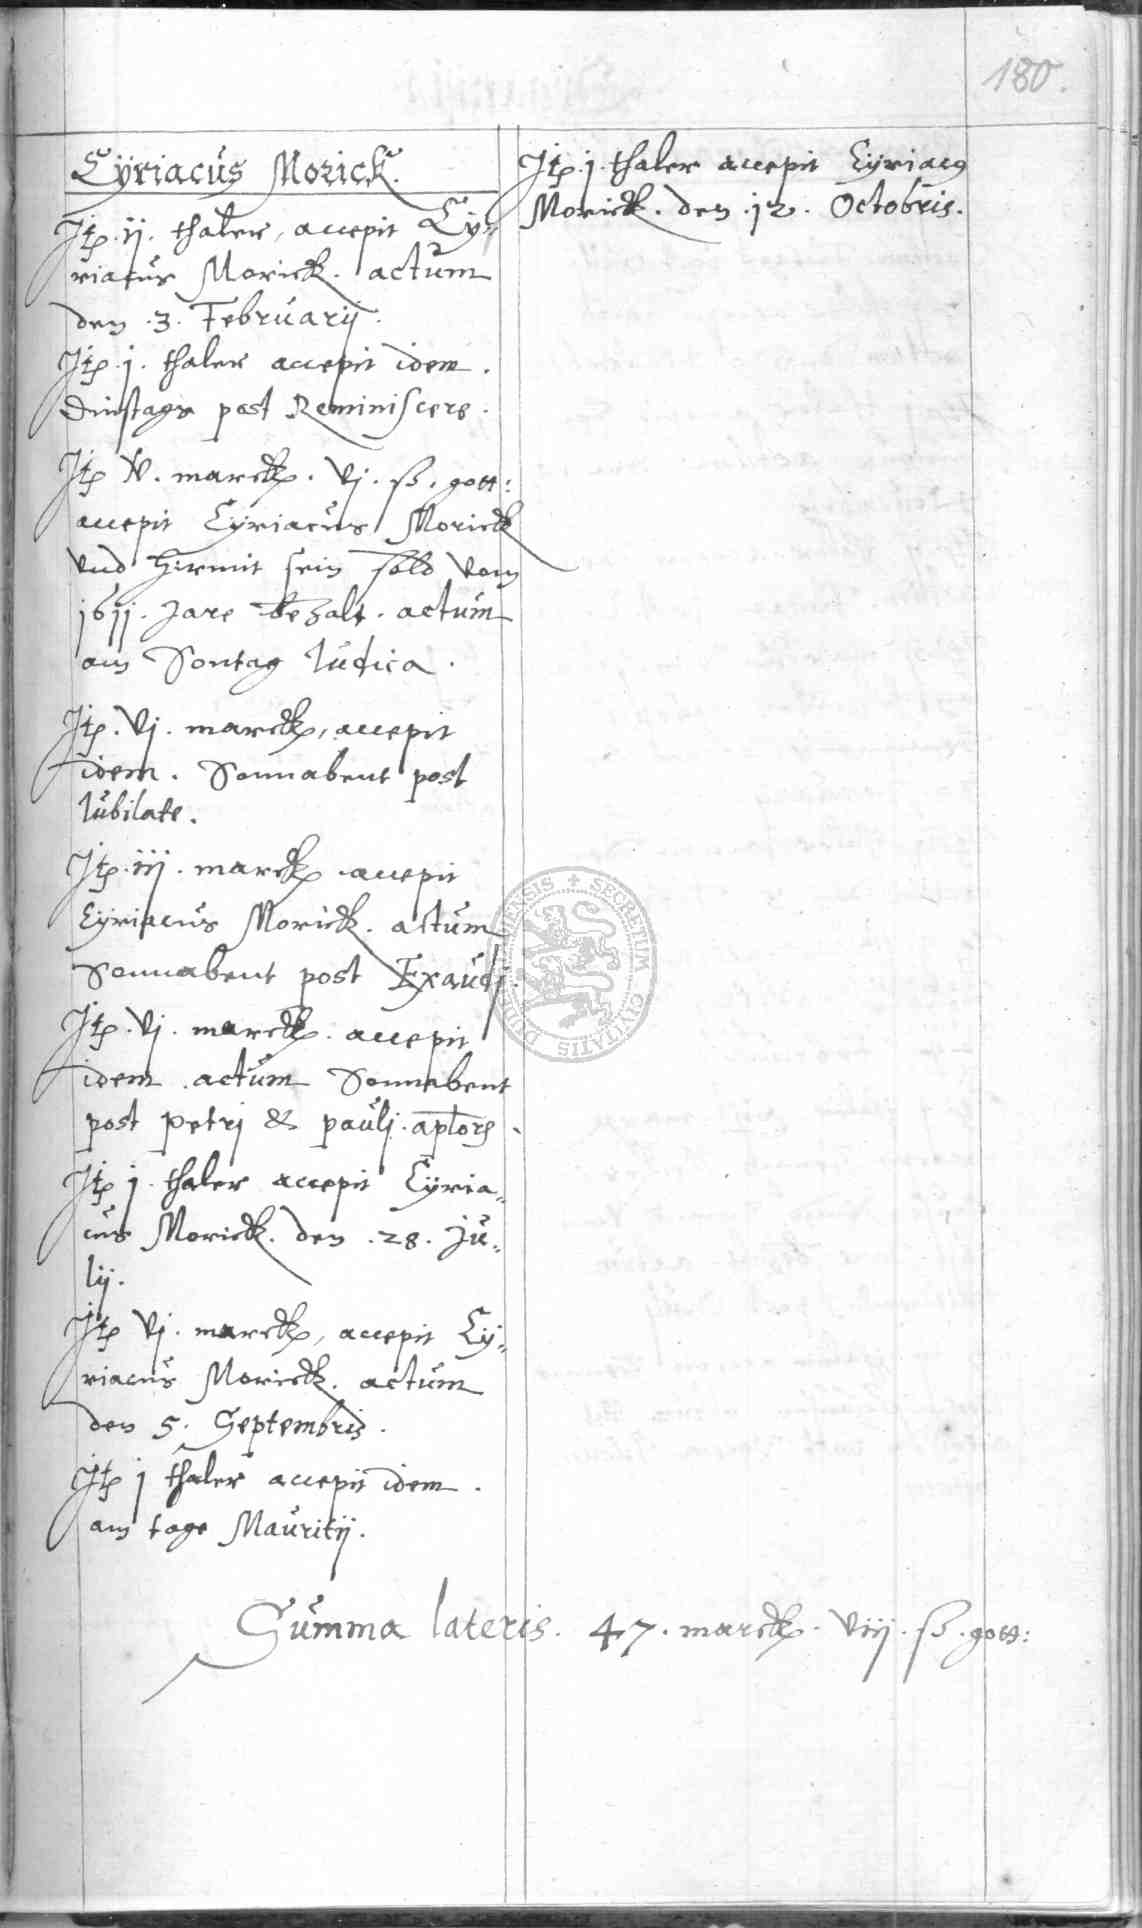 180.
Cÿriacus Morick.
Itp. ij. thaler, accepit Cÿ-
riacus Morick. actum
den .3. Februarij.
Itp. j. thaler accepit idem.
Dinstags post Reminiscere.
Itp v. marck. vj. ß. gott:
accepit Cÿriacus Morick
vnd hiemit sein sold vom
1611. Jare bezalt. actum
am Sontag Iudica.
Itp. vj. marck, accepit
idem. Sonnabent post
Iubilate.
Itp. iij. marck accepit
Cÿriacus Morick. actum
Sonnabent post Exaudj.
Itp. vj. marck. accepit
idem actum Sonnabent
post Petrj & Paulj. aplors.
Itp j. thaler accepit Cÿria-
cus Morick. den .28. Ju-
lij.
Itp vj. marck, accepit Cÿ-
riacus Morick. actum
den 5. Septembris.
Itp j thaler accepit idem.
am tage Mauritij.
Itp. j. thaler accepit Cÿriacꝰ
Morick. den .12. Octobris.
SECRETUM CIVITATIS
Summa lateris. 47. marck. viij. ß. gott: